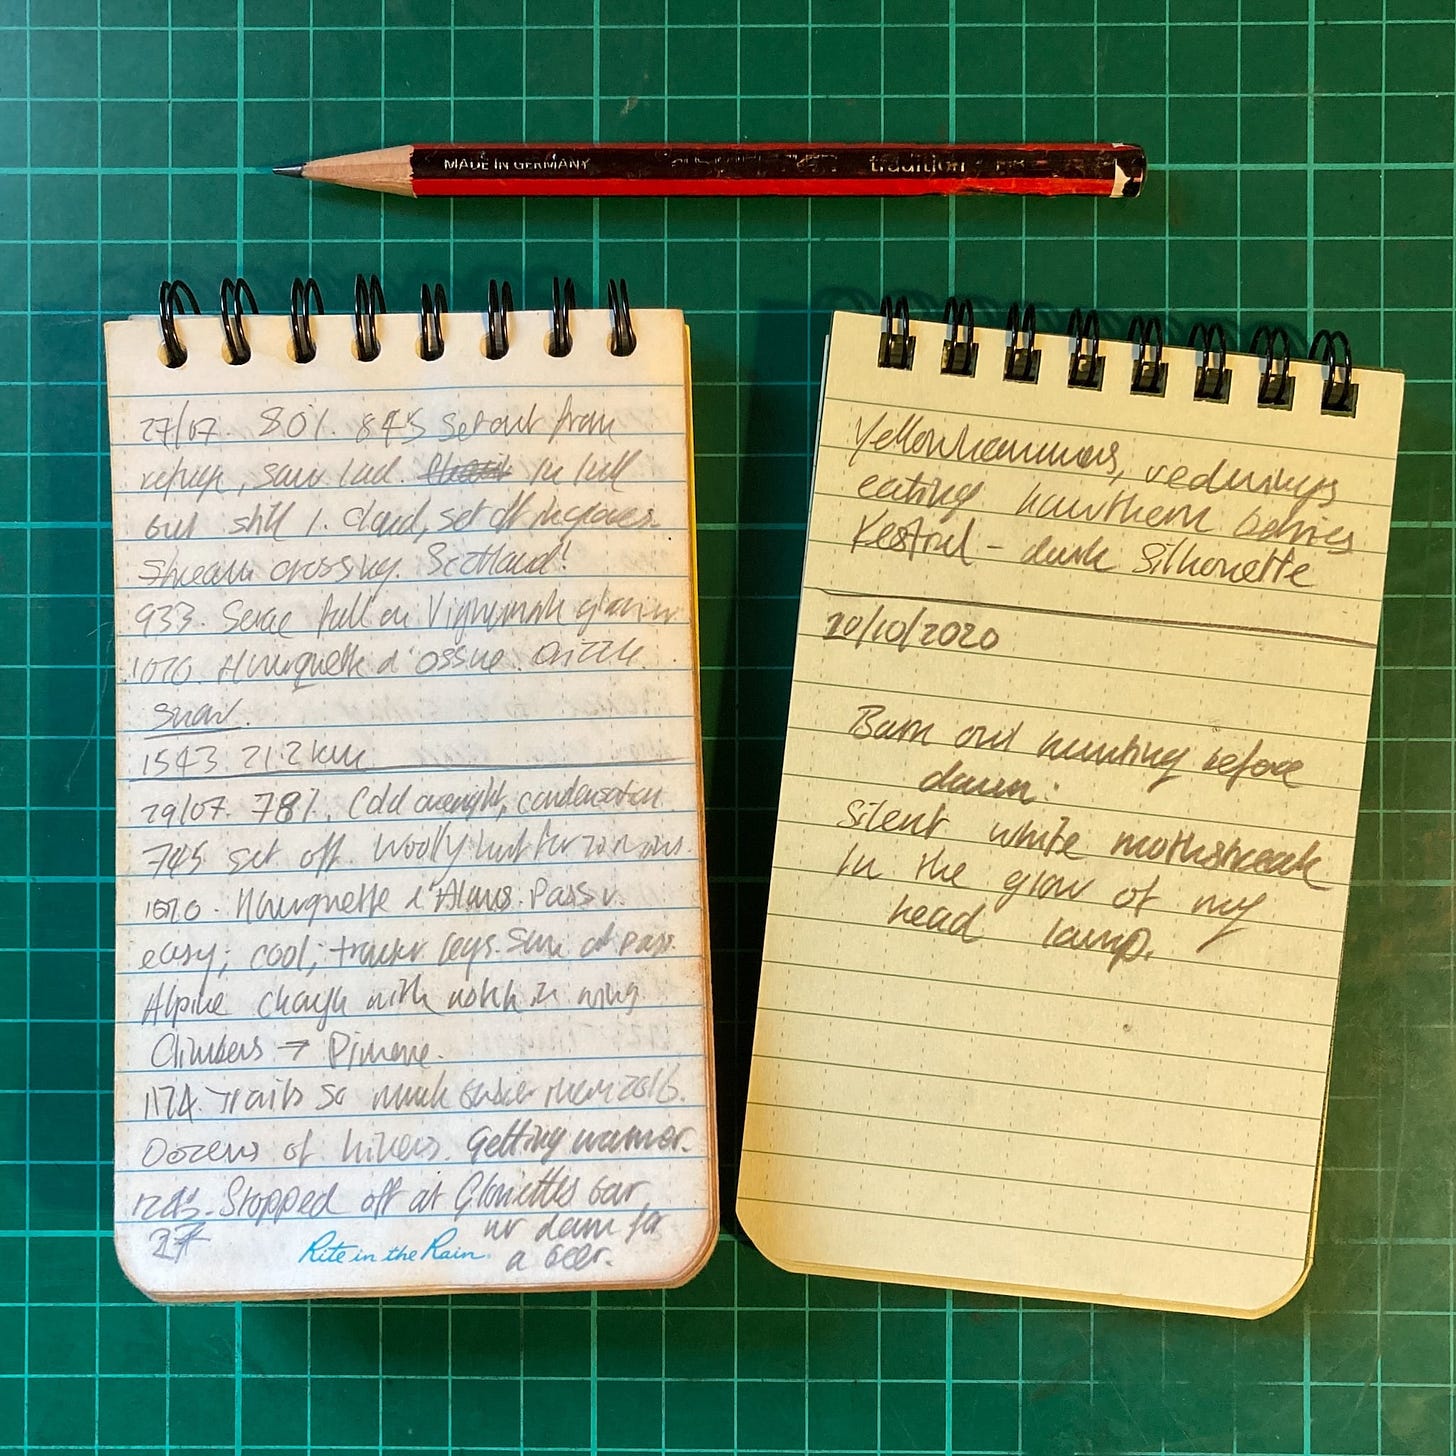 MADE IN GERMANY tradition
27/07. 80%. 845 Set out from
refuge, saw lad. In hill
but still 1. Cloud, set off in gloves.
Stream crossing. Scotland!
933. Serac fall on Vignemale glacier
1020. Hourquette d'Ossue. Drizzle.
snow.
1543 21.2 km
29/07. 78%. Cold overnight, condensation.
745 set off. Woolly hat for 20 mins.
1010. Hourquette d'Alans. Pass v.
easy; cool; tracker legs. Sun at pass.
Alpine Chough with notch in wing
Climbers → Pimene.
1174. Trails so much busier than 2016.
Dozens of hikers. Getting warmer.
Stopped off at Gloriettes bar
nr dam for
27
Rite in the Rain
a beer.
Yellowhammers, redwings
eating hawthorn berries
Kestrel - dark silhouette
20/10/2020
Barn owl hunting before
dawn:
Silent white mothstreak
In the glow of my
head lamp.